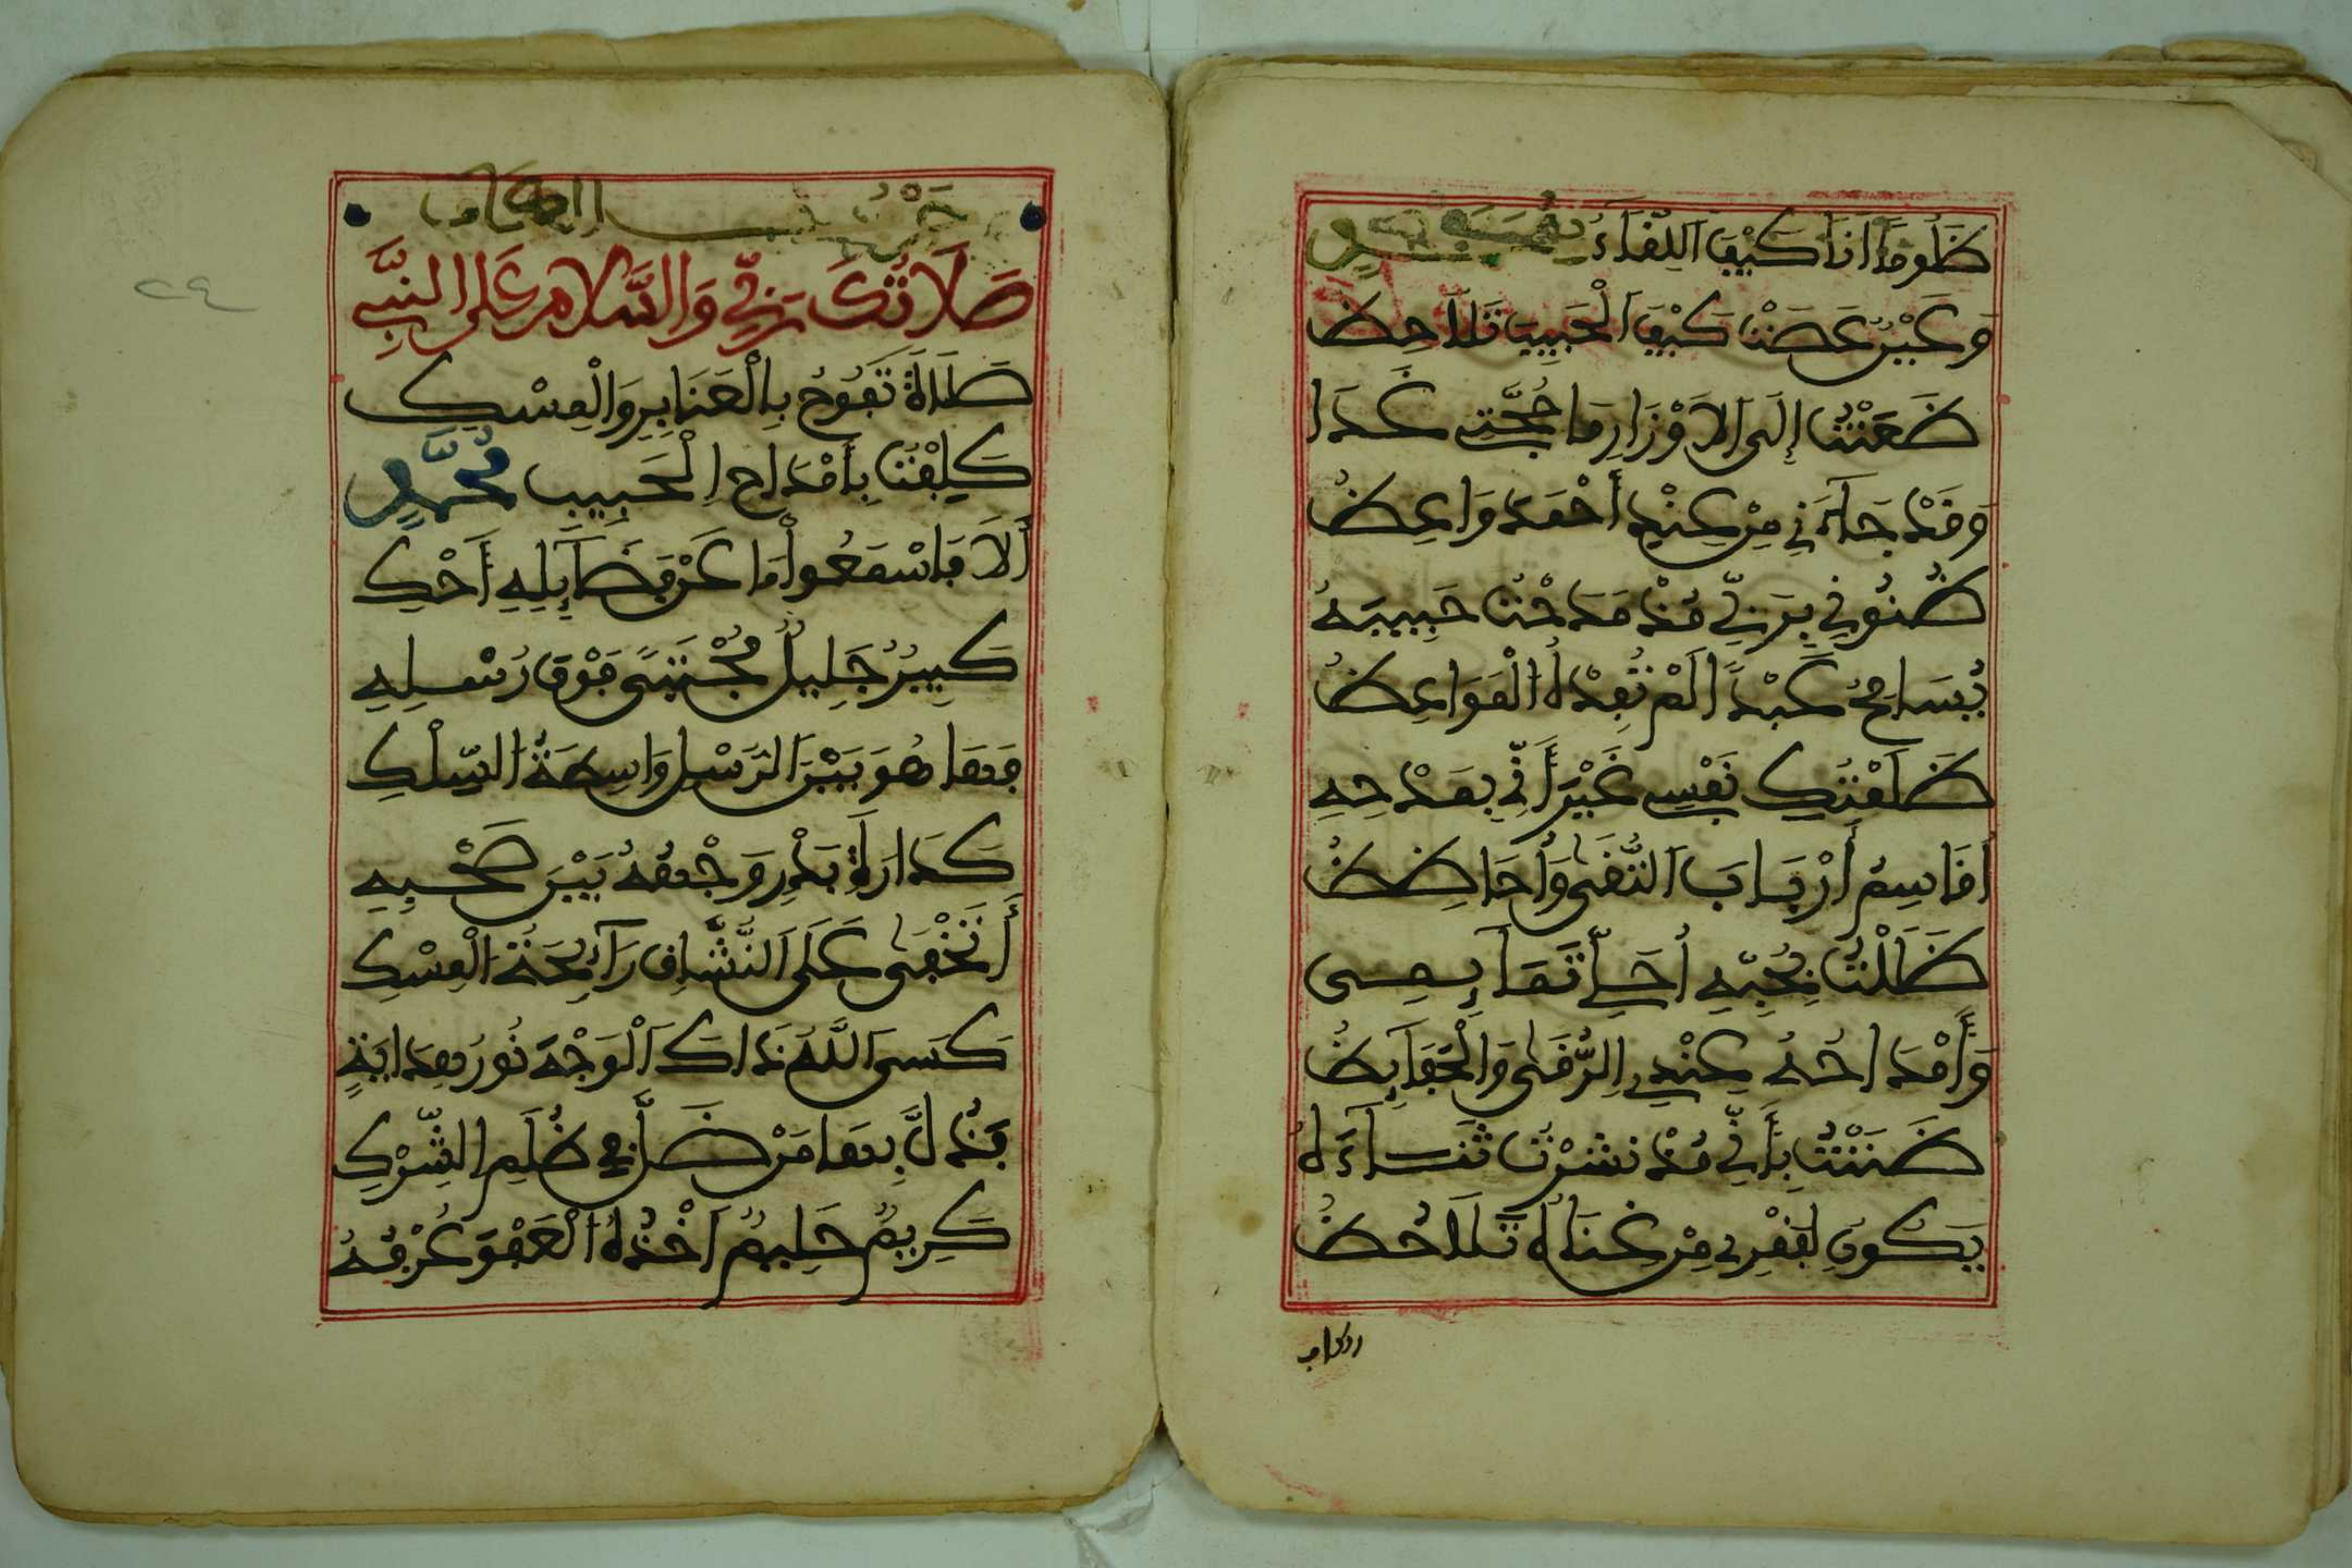 ظَلُومًا انَا كَيْفَ اللِّقَاءُ بِمُحَمَّدٍ
وَعَيْنٌ عَصَتْ كَيْفَ الْحَبِيبَ تُلَاحِظُ
ظَعَنْتُ إِلَى الَاوْزَارِ مَا حُجَّتِي غَدَا
وَقَدْ جَآءَنِي مِنْ عِنْدِ أَحْمَدَ وَاعِظُ
ظُنُونِي بِرَبِّي مُذْ مَدَحْتُ حَبِيبَهُ
يُسَامِحُ عَبْدًا لَمْ تُفِدْهُ الْمَوَاعِظُ
ظَلَمْتُكِ نَفْسِي غَيْرَ أَنِّي بِمَدْحِهِ
أُقَاسِمُ أَرْبَابَ التُّقَى وَأُحَافِظُ
ظَلَلْتُ بِحُبِّهِ أُحَلِّي تَمَآئِمِى
وَأَمْدَاحُهُ عِنْدِي الرُّقَى وَالْحَفَآئِظُ
ظَنَنْتُ بِأَنِّي مُذْ نَشَرْتُ ثَنَآءَهُ
يَكُونُ لِفَقْرِي مِنْ غِنَاهُ تَلَاحُظُ
حَرْفُ الكاف
صَلَاتُكَ رَبِّي وَالسَّلَامُ عَلَى النَّبِي
صَلَاةً تَفُوحُ بِالْعَنَابِرِ وَالْمِسْكِ
كَلِفْتُ بِأَمْدَاحِ الْحَبِيبِ مُحَمَّدٍ
أَلَا فَاسْمَعُوا مَا عَنْ فَضَآئِلِهِ أَحْكِ
كَبِيرٌ جَلِيلٌ مُجْتَبًى فَوْقَ رُسْلِهِ
فَمَا هُوَ بَيْنَ الرُّسْلِ وَاسِطَةُ السِّلْكِ
كَدَارَةِ بَدْرٍ وَجْهُهُ بَيْنَ صَحْبِهِ
أَتَخْفَى عَلَى النُّشَّاقِ رَآئِحَةُ الْمِسْكِ
كَسَى اللَّهُ ذَاكَ الْوَجْهَ نُورَ هِدَايَةٍ
فَدَلَّ بِهَا مَنْ ضَلَّ فِي ظُلَمِ الشِّرْكِ
كَرِيمٌ حَلِيمٌ أَخْذُهُ الْعَفْوَ عُرْفُهُ